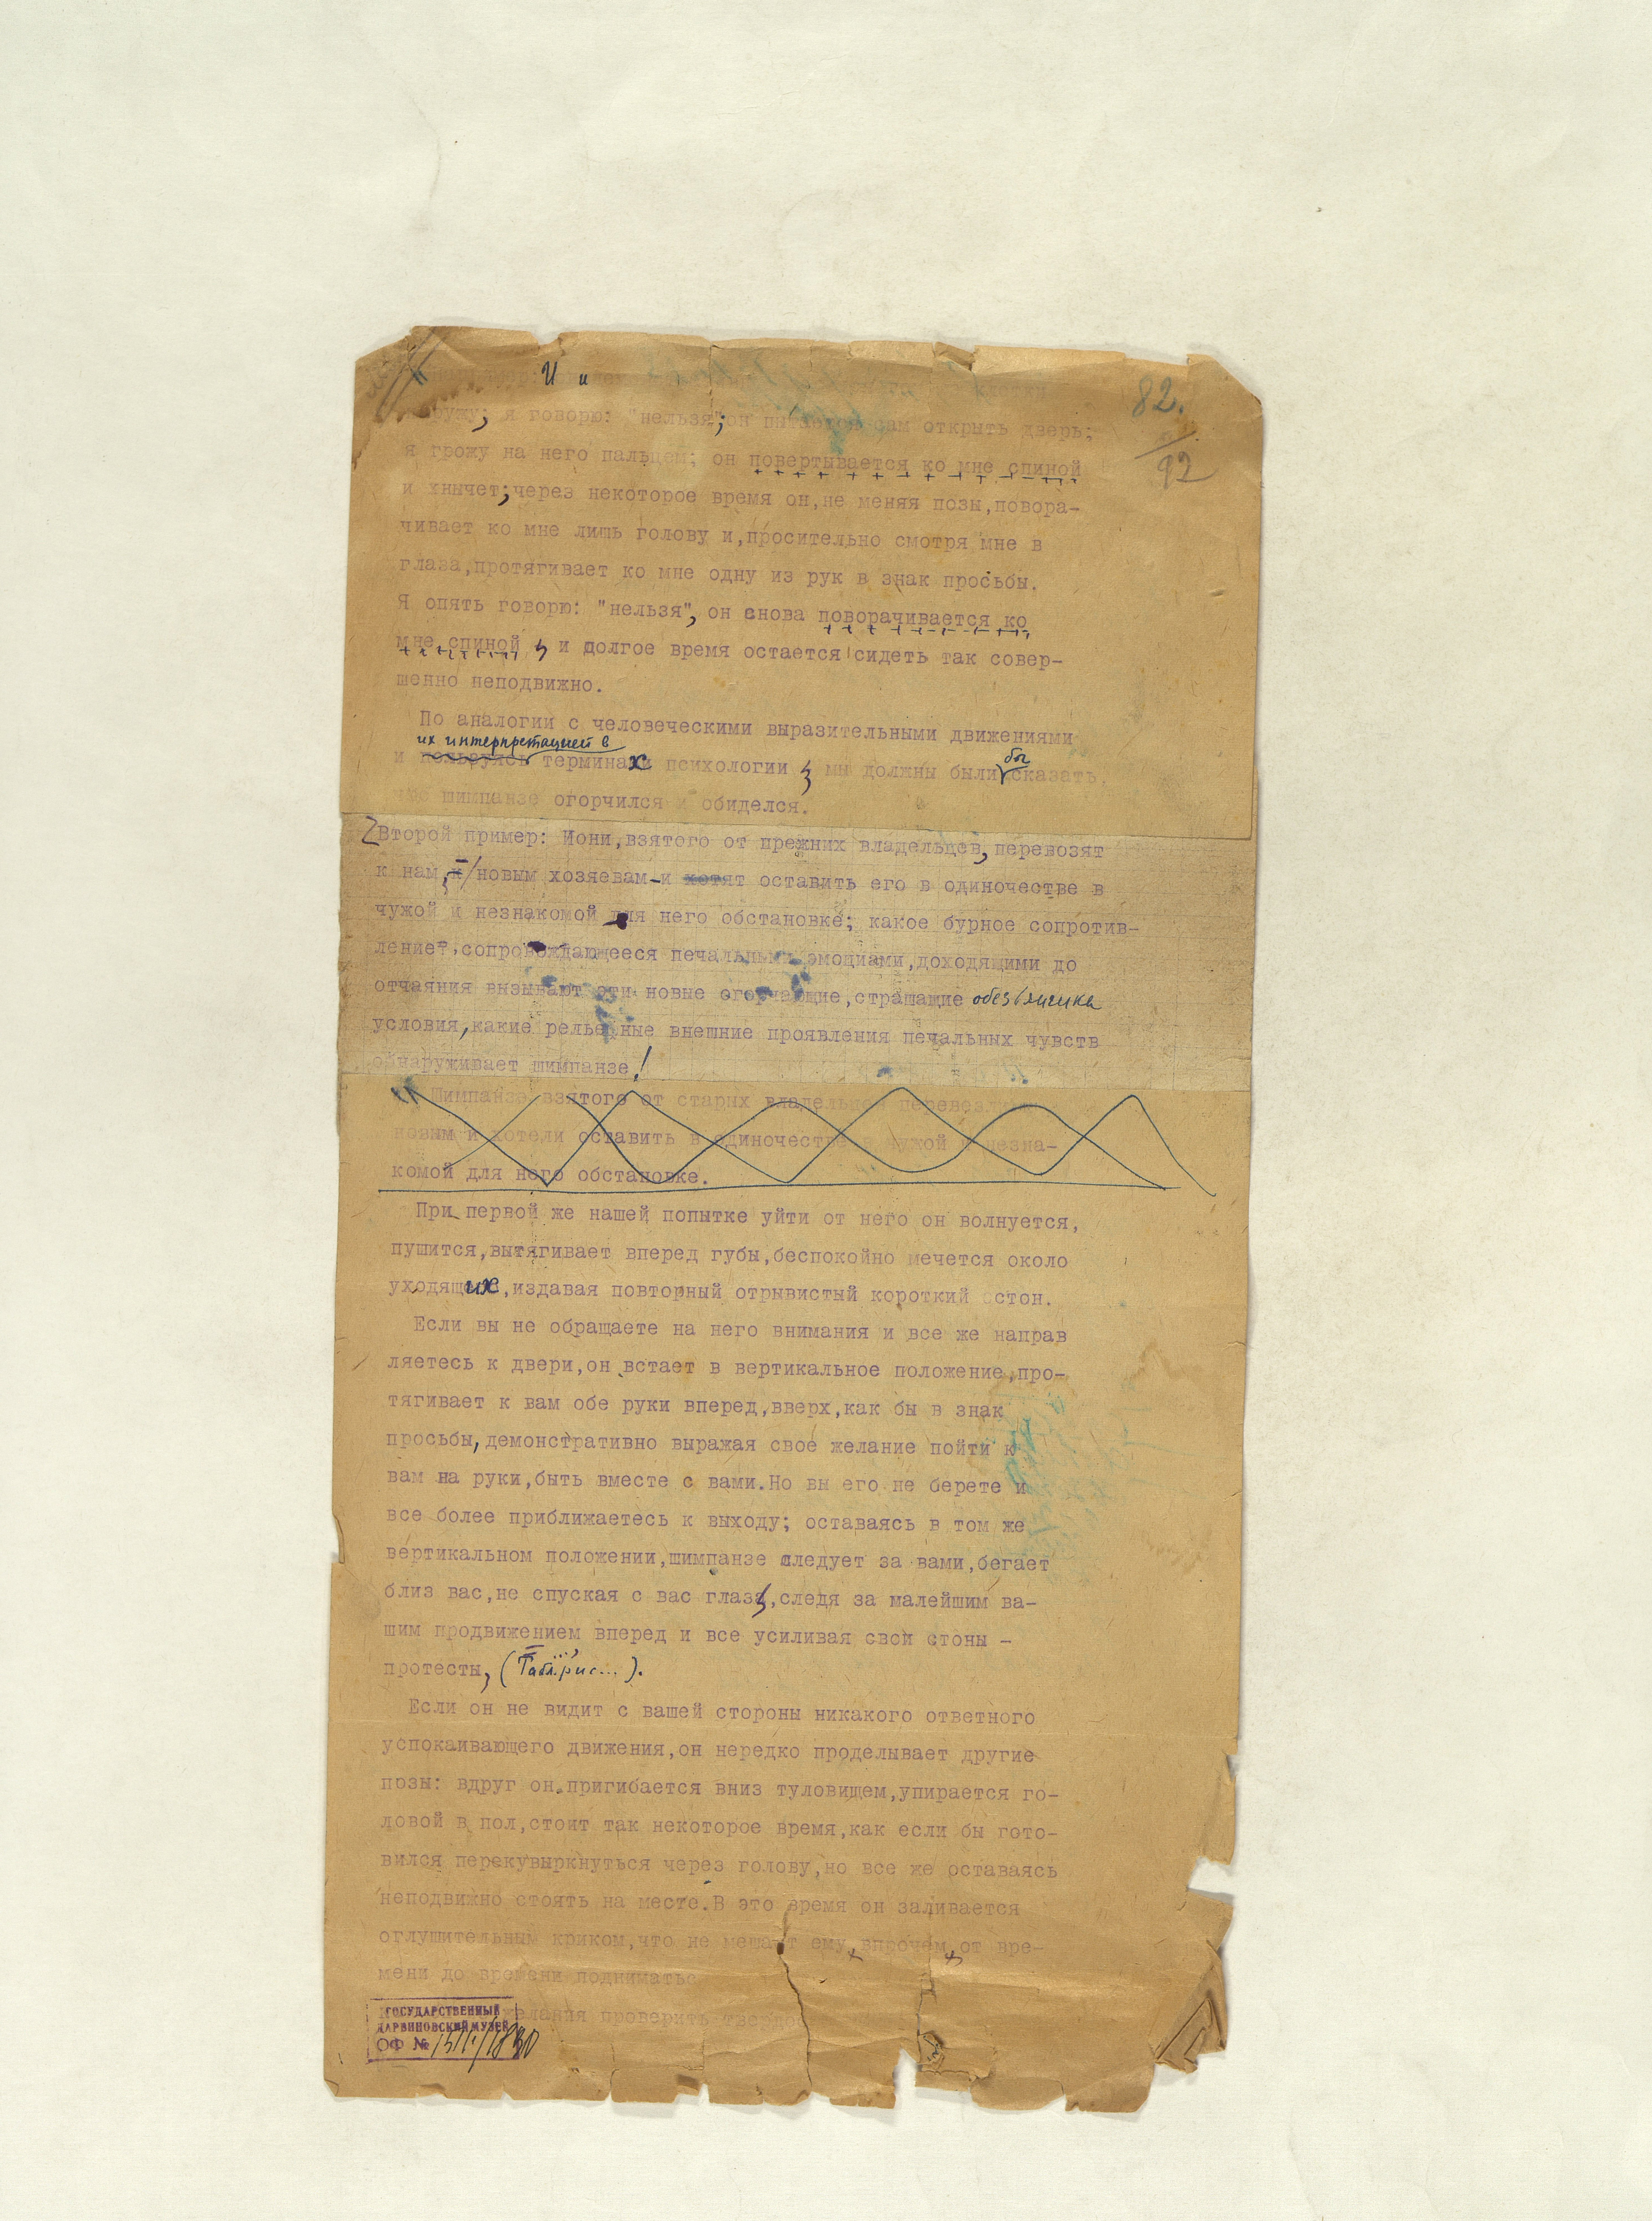 И и
82.
92
я говорю: "нельзя"; он пытается сам открыть дверь;
я грожу на него пальцем; он повертывается ко мне спиной
и хнычет; через некоторое время он, не меняя позы, повора-
чивает ко мне лишь голову и, просительно смотря мне в
глаза, протягивает ко мне одну из рук в знак просьбы.
Я опять говорю: "нельзя", он снова поворачивается ко
мне спиной и долгое время остается сидеть так совер-
шенно неподвижно.
По аналогии с человеческими выразительными движениями
их интерпретацией в
бы
и пользуясь терминах психологии мы должны были сказать,
что шимпанзе огорчился и обиделся.
Второй пример: Иони, взятого от прежних владельцев, перевозят
к нам, к новым хозяевам-и хотят оставить его в одиночестве в
чужой и незнакомой для него обстановке; какое бурное сопротив-
ление, сопровождающееся печальными эмоциами, доходящими до
отчаяния вызывают эти новые огорчающие, страшащие обезьянчика
условия, какие рельефные внешние проявления печальных чувств
обнаруживает шимпанзе!
Шимпанзе взятого от старых владельцев перевезли
новым и хотели оставить в одиночестве в чужой и незна-
комой для него обстановке.
При первой же нашей попытке уйти от него он волнуется,
пушится, вытягивает вперед губы, беспокойно мечется около
уходящих, издавая повторный отрывистый короткий стон.
Если вы не обращаете на него внимания и все же направ
ляетесь к двери, он встает в вертикальное положение, про-
тягивает к вам обе руки вперед, вверх, как бы в знак
просьбы, демонстративно выражая свое желание пойти к
вам на руки, быть вместе с вами. Но вы его не берете и
все более приближаетесь к выходу; оставаясь в том же
вертикальном положении, шимпанзе следует за вами, бегает
близ вас, не спуская с вас глаз, следя за малейшим ва-
шим продвижением вперед и все усиливая свои стоны -
протесты, (Табл. ..., рис...).
Если он не видит с вашей стороны никакого ответного
успокаивающего движения, он нередко проделывает другие
позы: вдруг он пригибается вниз туловищем, упирается го-
ловой в пол, стоит так некоторое время, как если бы гото-
вился перекувыркнуться через голову, но все же оставаясь
неподвижно стоять на месте. В это время он заливается
оглушительным криком, что не мешает ему, впрочем, от вре-
мени до времени подниматься
желания проверить твердо
ГОСУДАРСТВЕННЫЙ
ДАРВИНОВСКИЙ МУЗЕЙ
ОФ №